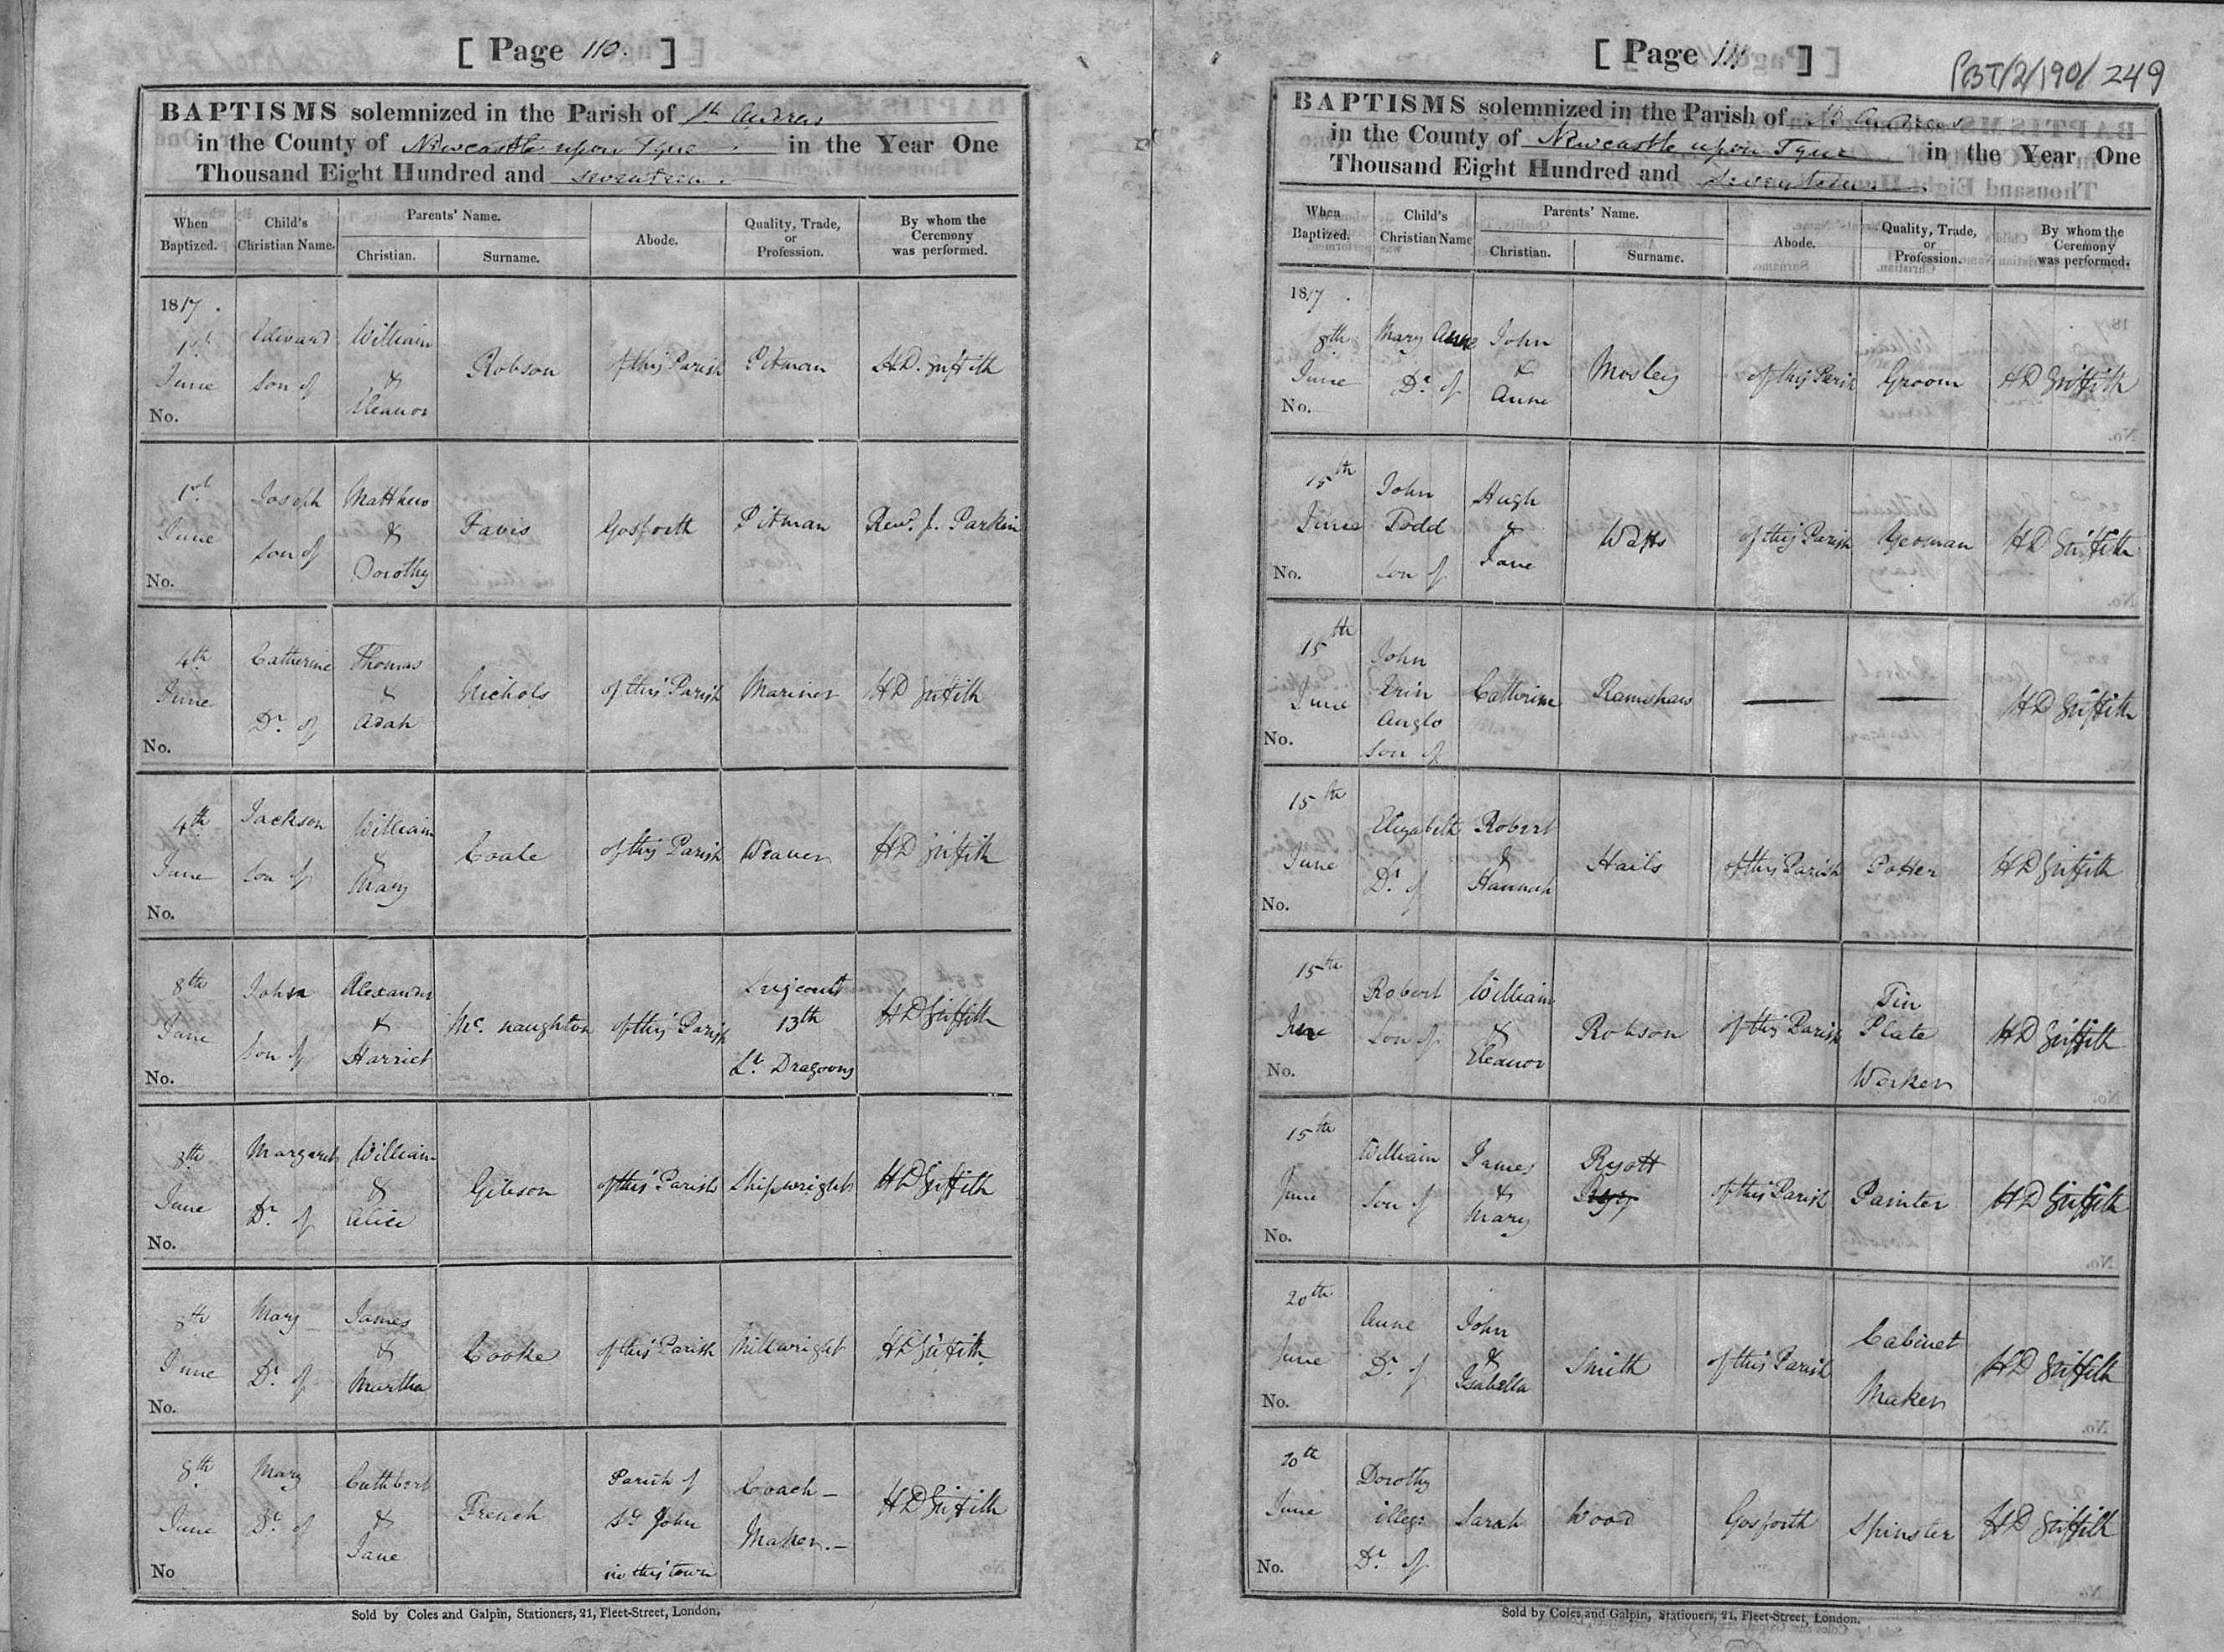 [ Page 110. ]
BAPTISMS solemnized in the Parish of St. Andrew
in the County of Newcastle upon Tyne in the Year One
Thousand Eight Hundred and seventeen.
When Baptized. Child's Christian Name. Parents' Name. Christian. Surname. Abode. Quality, Trade, or Profession. By whom the Ceremony was performed.
1817.
1st June Edward Son of William & Eleanor Robson of this Parish Pitman H.D. Griffith
No.
1st June Joseph Son of Matthew & Dorothy Favis Gosforth Pitman Revd. J. Parkin
No.
4th June Catherine Dr. of Thomas & Adah Nichols of this Parish Mariner HD Griffith
No.
4th June Jackson Son of William & Mary Coale of this Parish Weaver HD Griffith
No.
8th June John Son of Alexander & Harriet Mc. naughton of this Parish Serjeant 13th Lt. Dragoons HD Griffith
No.
8th June Margaret Dr. of William & Alice Gibson of this Parish Shipwright HD Griffith
No.
8th June Mary Dr. of James & Martha Cooke of this Parish Millwright HD Griffith
No.
8th June Mary Dr. of Cuthbert & Jane French Parish of St. John in this town Coach- Maker.- HD Griffith
No
Sold by Coles and Galpin, Stationers, 21, Fleet-Street, London.
[ Page 111 ]
PBT/2/190/249
BAPTISMS solemnized in the Parish of St Andrews
in the County of Newcastle upon Tyne in the Year One
Thousand Eight Hundred and Seventeen.
When Baptized. Child's Christian Name Parents' Name. Christian. Surname. Abode. Quality, Trade, or Profession. By whom the Ceremony was performed.
1817.
8th June Mary Anne Dr. of John & Anne Mosley of this Parish Groom HD Griffith
No.
15th June John Todd Son of Hugh & Jane Watts of this Parish Yeoman HD Griffith
No.
15th June John Erin Anglo Son of Catherine Ramshaw — — HD Griffith
No.
15th June Elizabeth Dr. of Robert & Hannah Hails of this Parish Potter HD Griffith
No.
15th June Robert Son of William & Eleanor Robson of this Parish Tin Plate Worker HD Griffith
No.
15th June William Son of James & Mary Ryott of this Parish Painter HD Griffith
No.
20th June Anne Dr. of John & Isabella Smith of this Parish Cabinet Maker HD Griffith
No.
20th June Dorothy illeg: Dr. of Sarah Wood Gosforth Spinster HD Griffith
No.
Sold by Coles and Galpin, Stationers, 21, Fleet-Street, London.